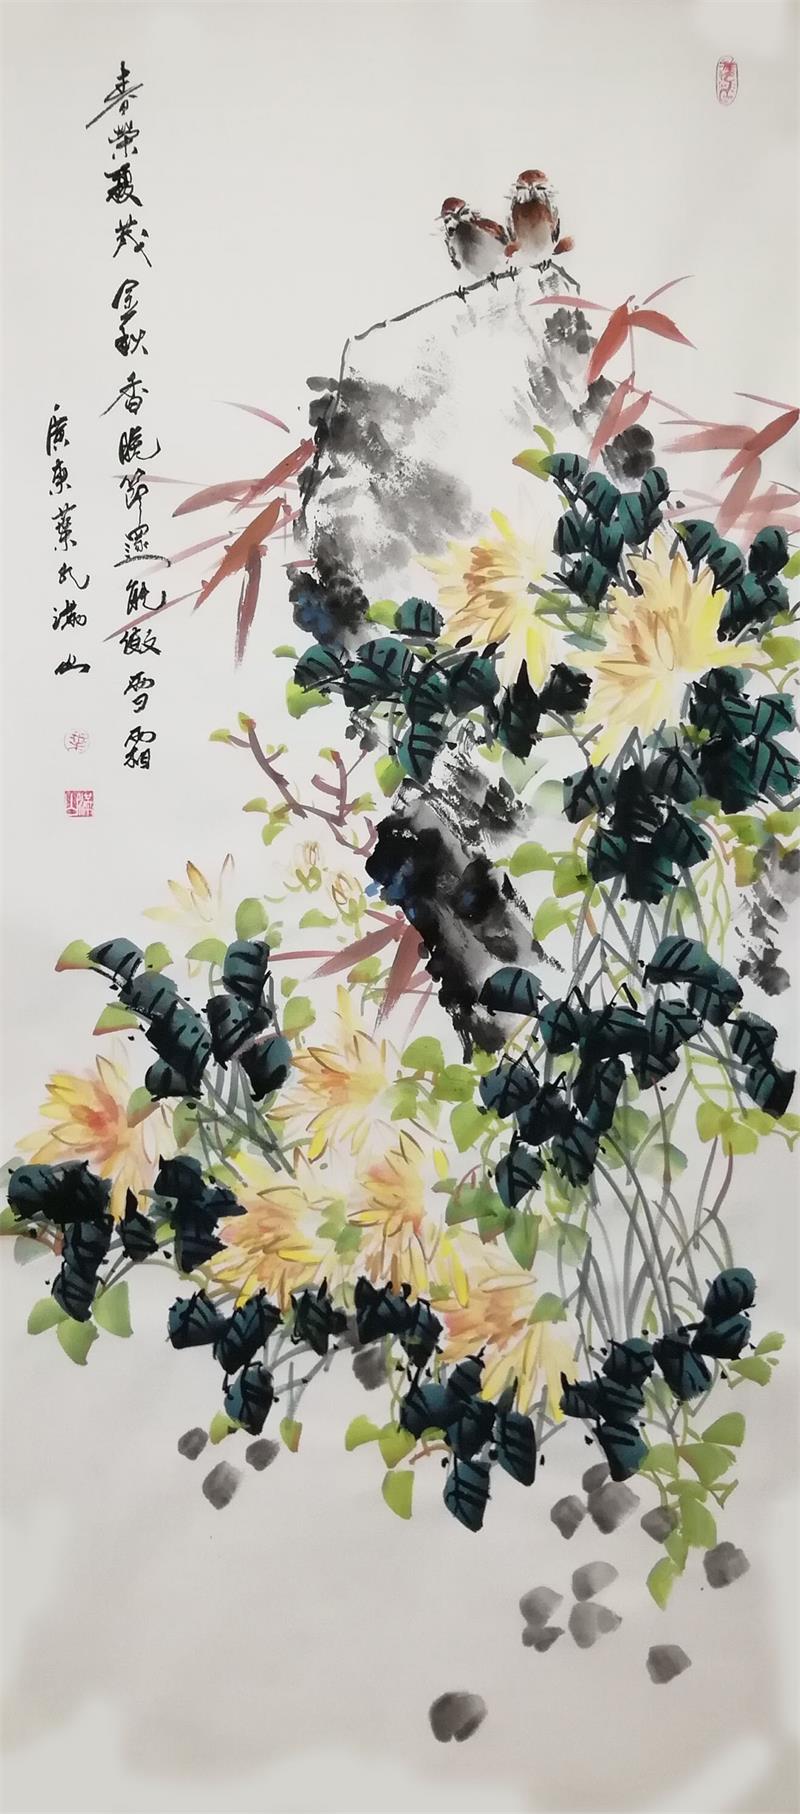 春榮夏茂金秋香晚節還能傲雪霜
廣東葉滿山